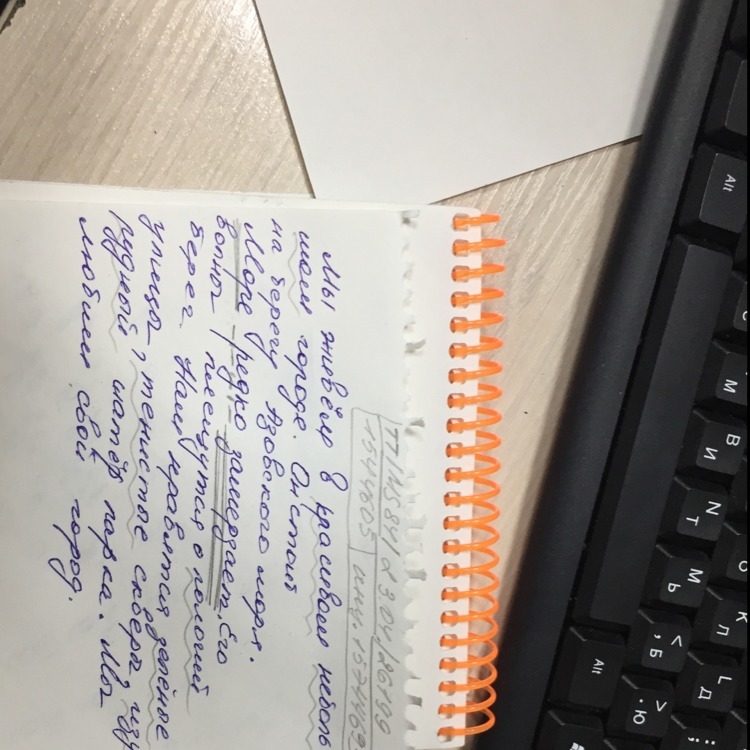 77/INS841 23.04./26199
1544605 инц. 1574469
Мы живём в красивом неболь
шом городе. Он стоит
на берегу Азовского моря.
Море редко замерзает. Его
волны плещутся о пологий
берег. Нам нравятся зелёные
улицы, тенистые скверы, изу
рудный шатёр парка. Мы
любим свой город.
Alt
М
И
В
Т
N
Ь
М
Б
<
,
Л
К
Ю
>
.
Д
L
Alt